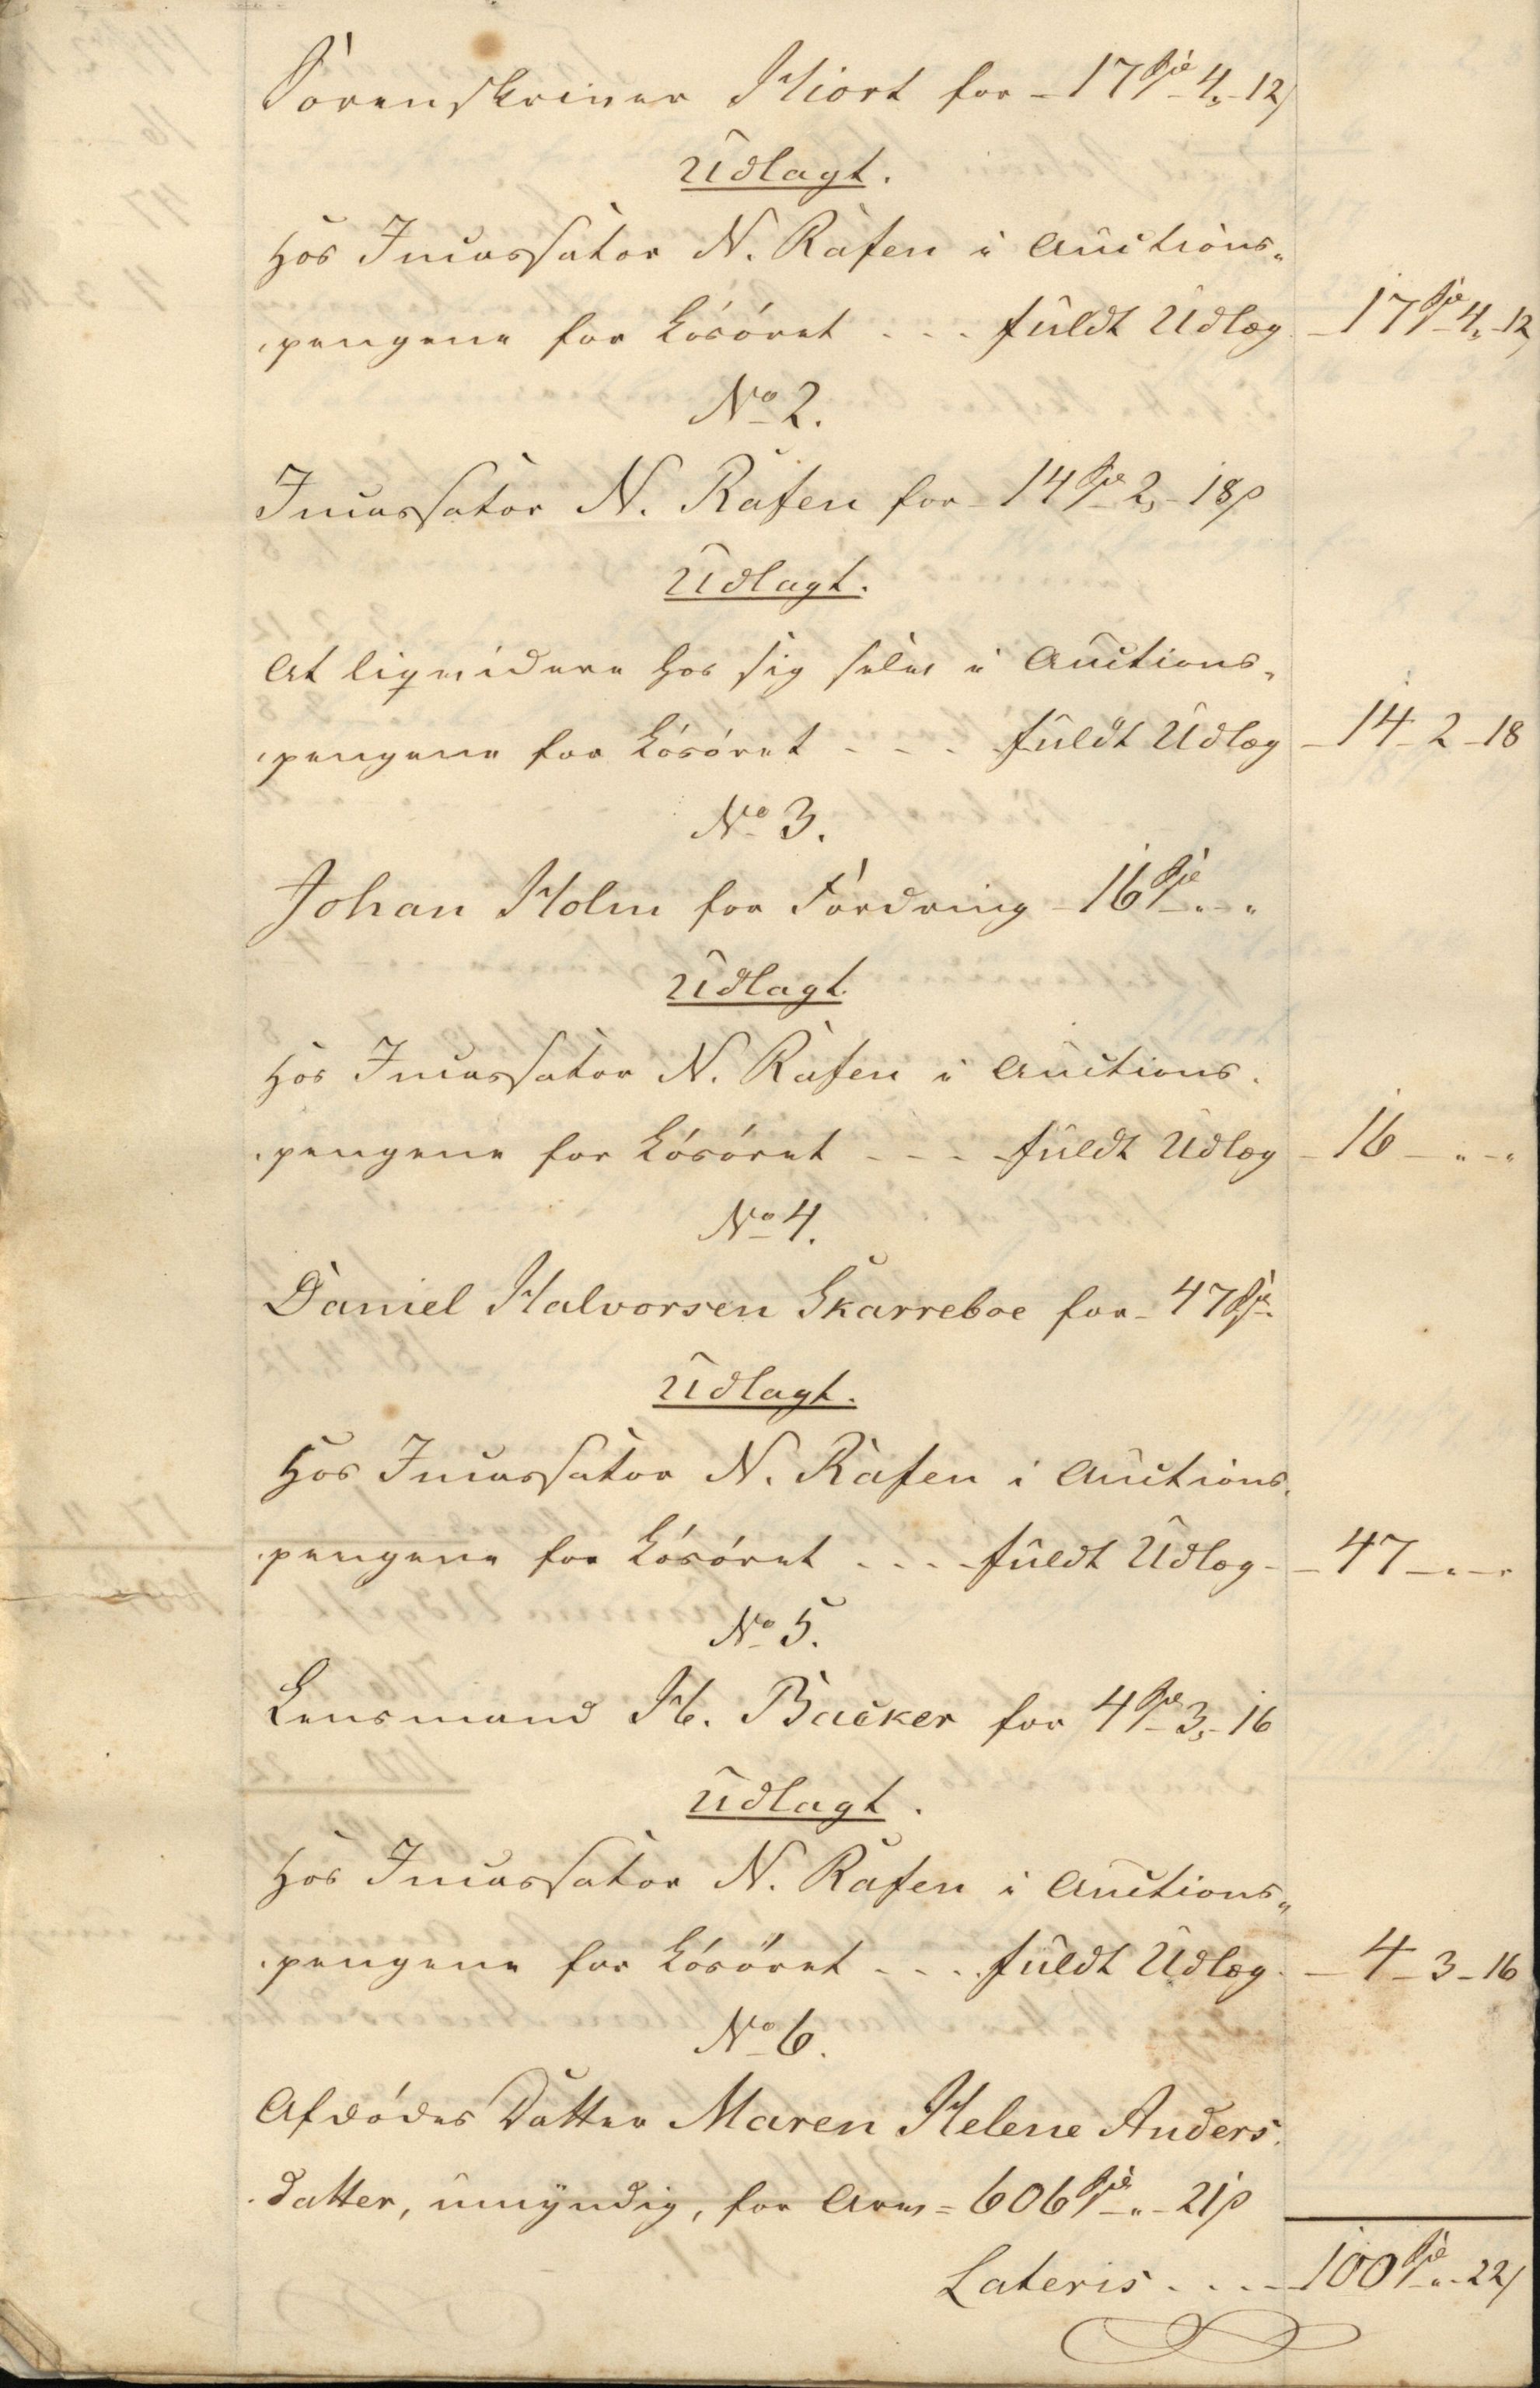 Sorenskriver Hiort for - 17 Spd - 4, - 12 s
Udlagt.
Hos Incassator N. Rafen i Auctions-
pengene for Løsøret . . . fuldt Udlæg. - 17 Spd 4, - 12 s
No 2.
Incassator N. Rafen for - 14 Spd 2, - 18 s
Udlagt.
At liqvidere hos sig selv i Auctions-
pengene for Løsøret - - - fuldt Udlæg - 14 - 2 - 18
No 3.
Johan Holm for Fordring - 16 Spd - " - "
Udlagt
Hos Incassator N. Rafen i Auctions-
pengene for Løsøret - - - fuldt Udlæg - 16 - " - "
No 4.
Daniel Halvorsen Skarreboe for - 47 Spd.
Udlagt.
Hos Incassator N. Rafen i Auctions-
pengene for Løsøret . . . fuldt Udlæg - - 47 - " - "
No 5.
Lensmand H. Backer for 4 Spd - 3, - 16
Udlagt.
Hos Incassator N. Rafen i Auctions-
pengene for Løsøret . . . fuldt Udlæg. - 4 - 3 - 16
No 6.
Afdødes Datter Maren Helene Anders-
datter, umyndig, for Arv = 606 Spd - " - 21 s
Lateris . . . - 100 Spd - " - 22 s